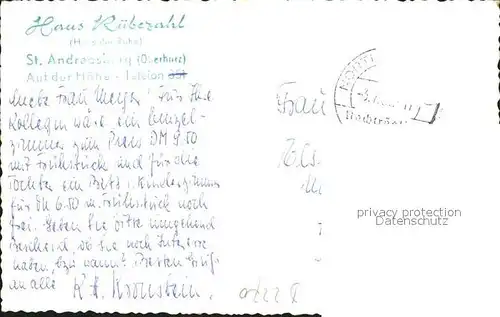 Haus Rübezahl
(Haus der Ruhe)
St. Andreasberg (Oberharz)
Auf der Höhe · Telefon 351
Liebe Frau Meyer! Für Ihre
Kollegin wäre ein Einzel-
zimmer zum Preis DM 9.50
mit Frühstück und für die
Töchter ein Bett i. Kinderzimmer
für DM 6.50 m. Frühstück noch
frei. Geben Sie bitte umgehend
Bescheid, ob sie noch Interesse
haben, bzw. wann? Besten Gruß
an alle
Frau
privacy protection
Datenschutz